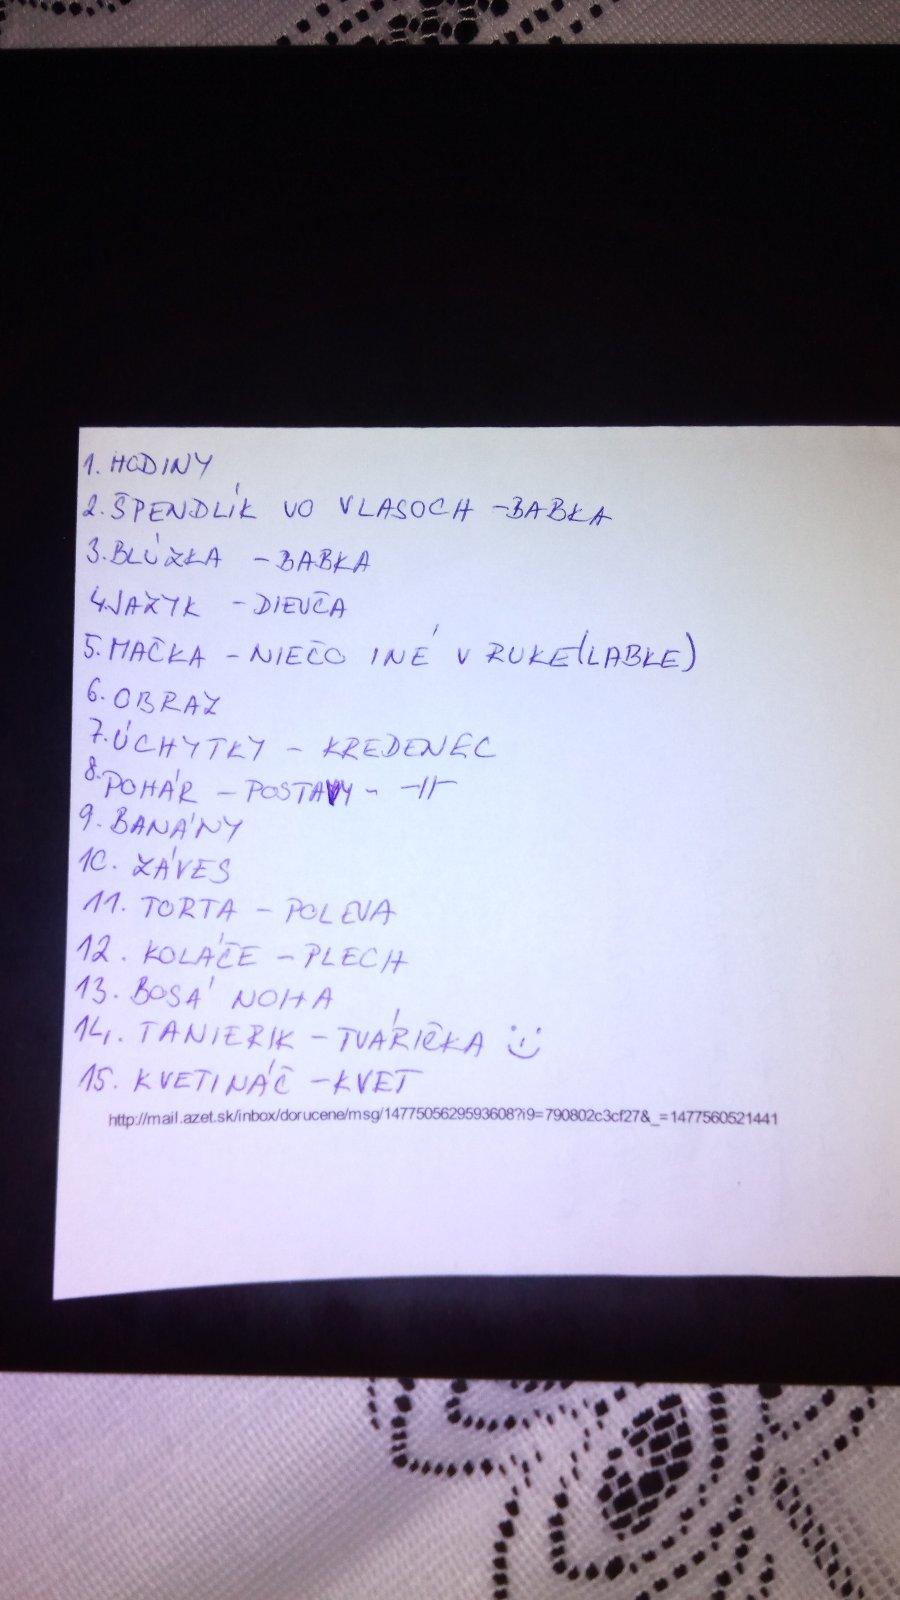 1. HODINY
2. ŠPENDLÍK VO VLASOCH - BABKA
3. BLÚZKA - BABKA
4. JAZYK - DIEVČA
5. MAČKA - NIEČO INÉ V RUKE (LABKE)
6. OBRAZ
7. ÚCHYTKY - KREDENEC
8. POHÁR - POSTAVY - -||-
9. BANÁNY
10. ZÁVES
11. TORTA - POLEVA
12. KOLÁČE - PLECH
13. BOSÁ NOHA
14. TANIERIK - TVÁRIČKA :-)
15. KVETINÁČ - KVET
http://mail.azet.sk/inbox/dorucene/msg/1477505629593608?i9=790802c3cf27&_=1477560521441